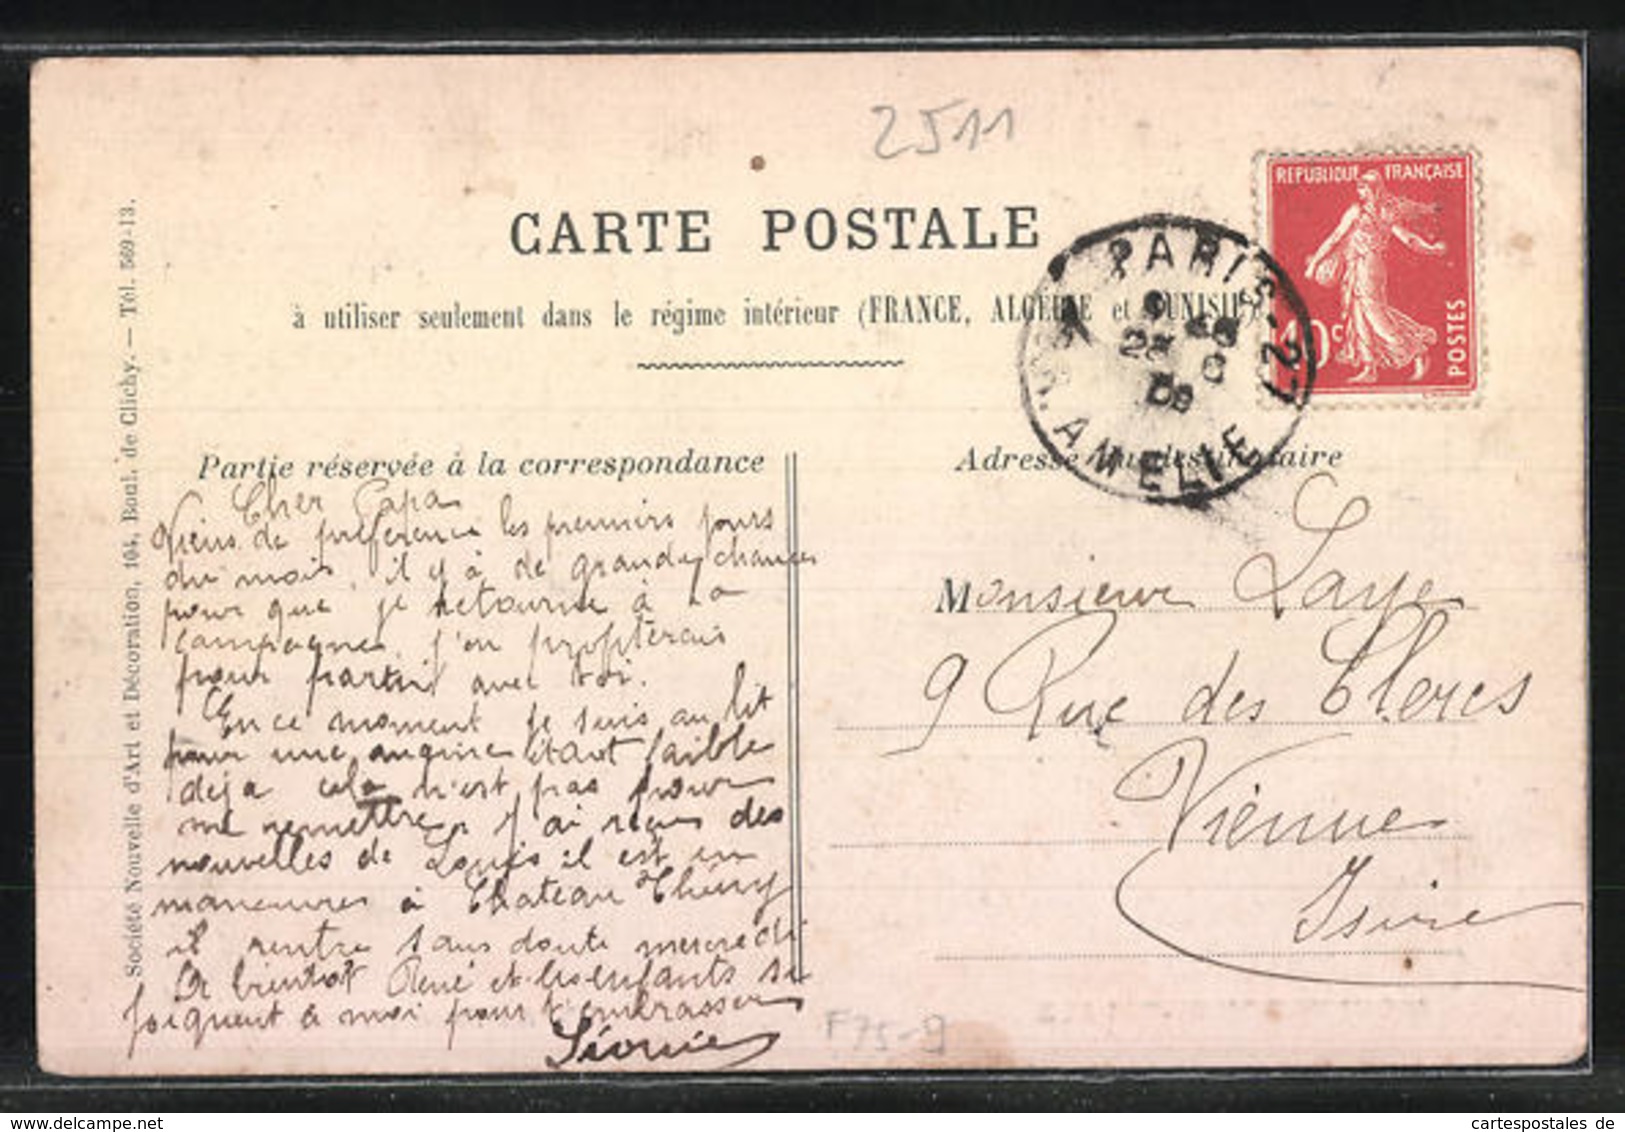 2511
CARTE POSTALE
à utiliser seulement dans le régime intérieur (FRANCE, ALGERIE et TUNISIE)
REPUBLIQUE FRANÇAISE
10c POSTES
PARIS-27
R. AMELIE
Société Nouvelle d'Art et Décoration, 104, Boul. de Clichy. — Tél. 569-13.
Partie réservée à la correspondance
Cher Papa
Viens de préférence les premiers jours
du mois, il y a de grandes chances
pour que je retourne à la
campagne, j'en profiterais
pour partir avec toi.
En ce moment je suis au lit
pour une angine étant faible
déjà cela n'est pas pour
me remettre, j'ai reçu des
nouvelles de Louis il est en
manœuvres à Chateau Thierry
il rentre sans doute mercredi
A bientôt René et les enfants se
joignent à moi pour t'embrasser
Léonie
Adresse du destinataire
Monsieur Laye
9 Rue des Clercs
Vienne
Isère
F75-9
www.delcampe.net
cartespostales de